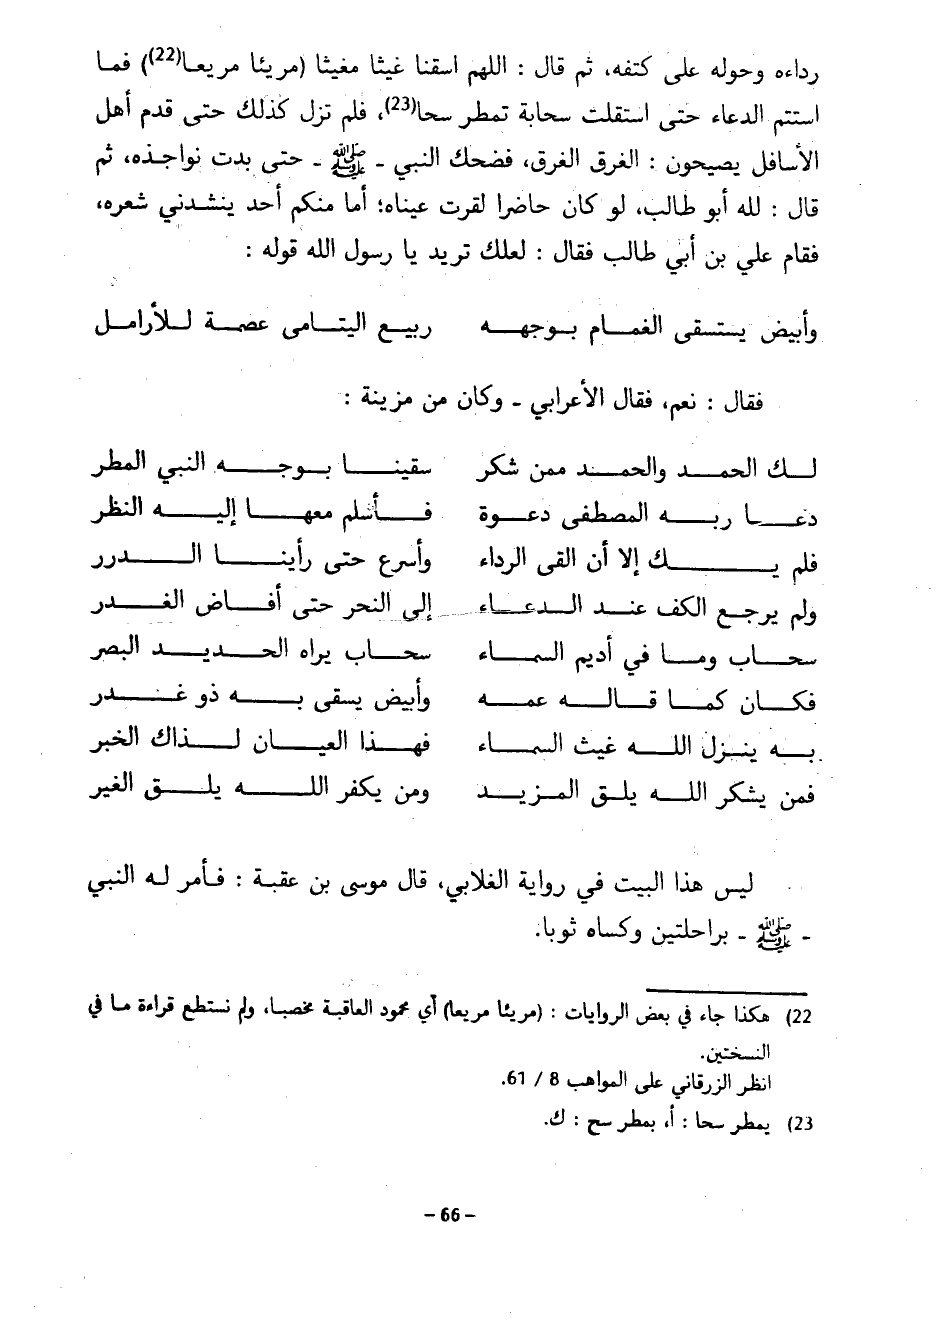 رداءه وحوله على كتفه، ثم قال : اللهم اسقنا غيثا مغيثا (مريئا مريعا(22)) فما
استتم الدعاء حتى استقلت سحابة تمطر سحا(23)، فلم تزل كذلك حتى قدم أهل
الأسافل يصيحون : الغرق الغرق، فضحك النبي ـ ﷺ ـ حتى بدت نواجذه، ثم
قال : لله أبو طالب، لو كان حاضرا لقرت عيناه؛ أما منكم أحد ينشدني شعره،
فقام علي بن أبي طالب فقال : لعلك تريد يا رسول الله قوله :
وأبيض يستسقى الغمام بوجهه ربيع اليتامى عصمة للأرامل
فقال : نعم، فقال الأعرابي ـ وكان من مزينة :
لك الحمد والحمد ممن شكر سقينا بوجه النبي المطر
دعا ربه المصطفى دعوة فأسلم معها إليه النظر
فلم يك إلا أن القى الرداء وأسرع حتى رأينا الدرر
ولم يرجع الكف عند الدعاء إلى النحر حتى أفاض الغدر
سحاب وما في أديم السماء سحاب يراه الحديد البصر
فكان كما قاله عمه وأبيض يسقى به ذو غدر
به ينزل الله غيث السماء فهذا العيان لذاك الخبر
فمن يشكر الله يلق المزيد ومن يكفر الله يلق الغير
ليس هذا البيت في رواية الغلابي، قال موسى بن عقبة : فأمر له النبي
ـ ﷺ ـ براحلتين وكساه ثوبا.
22) هكذا جاء في بعض الروايات : (مريئا مريعا) أي محمود العاقبة مخصبا، ولم نستطع قراءة ما في
النسختين.
انظر الزرقاني على المواهب 8 / 61.
23) يمطر سحا : أ، بمطر سح : ك.
- 66 -